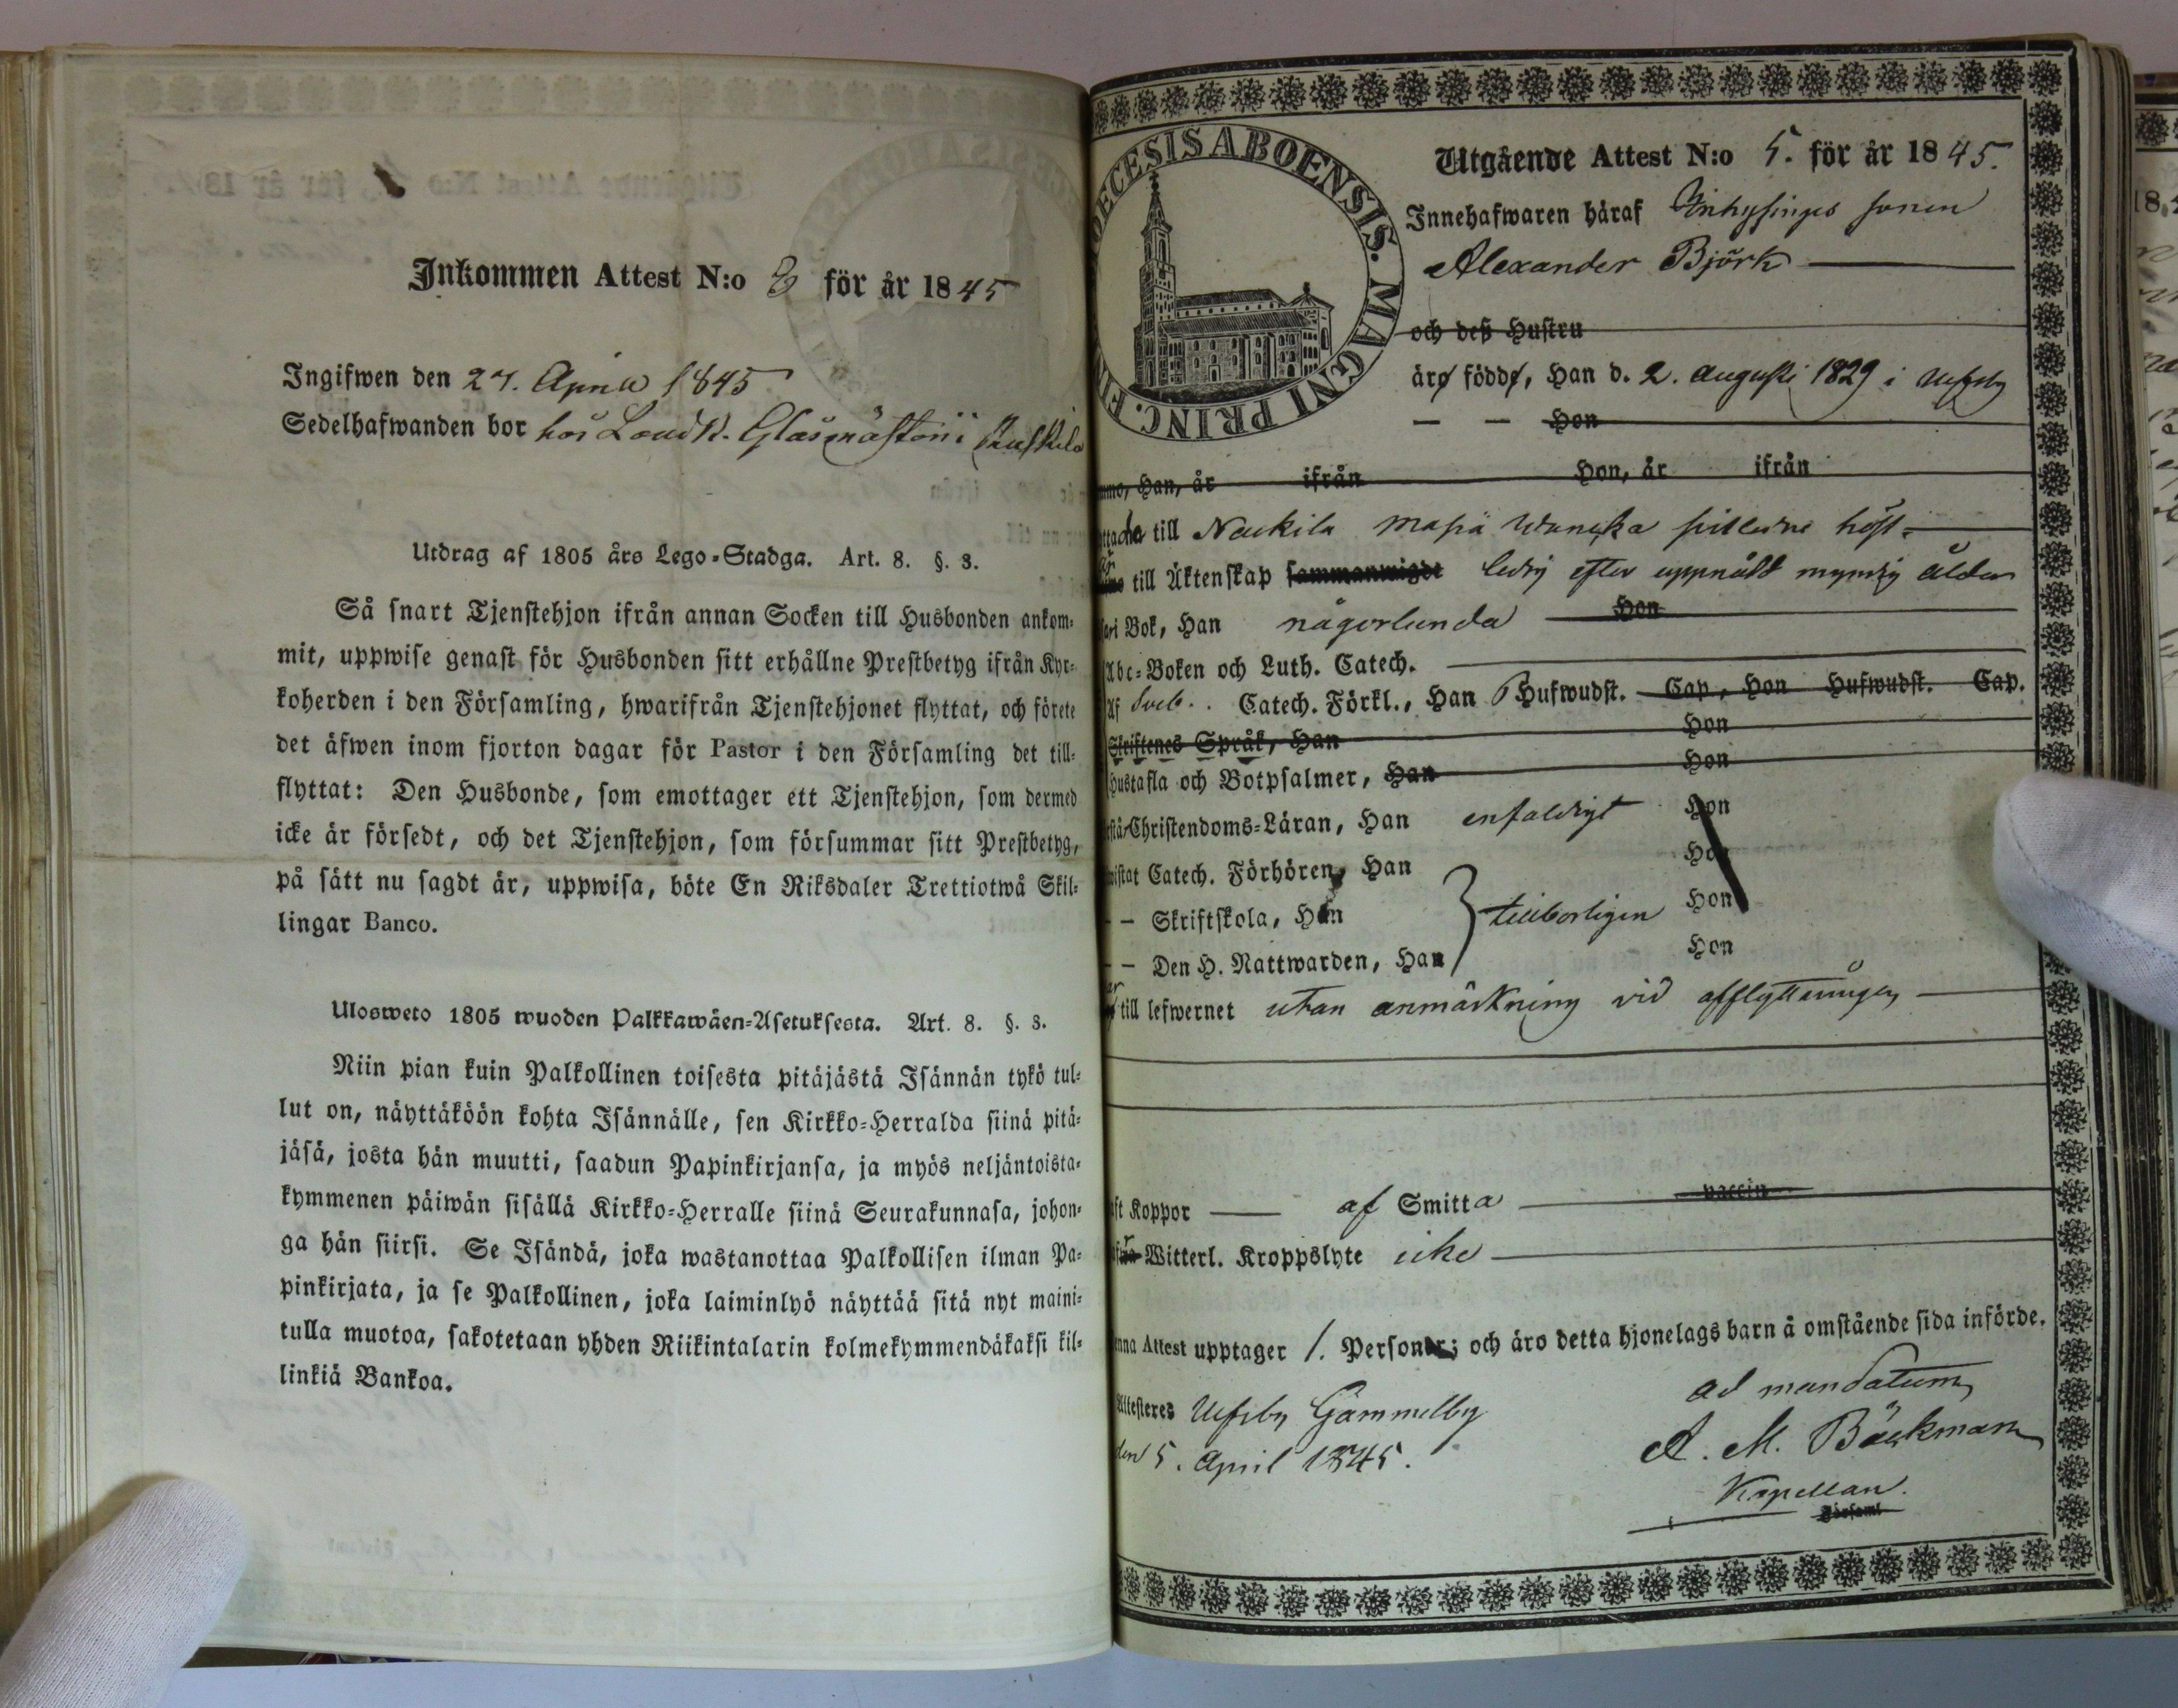 Inkommen Attest N:o 8 för år 1845
Ingifwen den 27. April 1845
Sedelhafwanden bor hos Landk. Glasmästön i
Utdrag af 1805 års Lego-Stadga. Art. 8. §. 3.
Så snart Tjenstehjon ifrån annan Socken till Husbonden ankom-
mit, uppwise genast för Husbonden sitt erhållne Prestbetyg ifrån Kyr-
koherden i den Församling, hwarifrån Tjenstehjonet flyttat, och förete
det äfwen inom fjorton dagar för Pastor i den Församling det till-
flyttat: Den Husbonde, som emottager ett Tjenstehjon, som dermed
icke är försedt, och det Tjenstehjon, som försummar sitt Prestbetyg,
på sätt nu sagdt är, uppwisa, böte En Riksdaler Trettiotwå Skil-
lingar Banco.
Ulosweto 1805 wuoden Palkkawäen-Asetuksesta. Art. 8. §. 3.
Niin pian kuin Palkollinen toisesta pitäjästä Isännän tykö tul-
lut on, näyttäköön kohta Isännälle, sen Kirkko-Herralda siinä pitä-
jäsä, josta hän muutti, saadun Papinkirjansa, ja myös neljäntoista-
kymmenen päiwän sisällä Kirkko-Herralle siinä Seurakunnasa, johon-
ga hän siirsi. Se Isändä, joka wastanottaa Palkollisen ilman Pa-
pinkirjata, ja se Palkollinen, joka laiminlyö näyttää sitä nyt maini-
tulla muotoa, sakotetaan yhden Riikintalarin kolmekymmendäkaksi kil-
linkiä Bankoa.
DECESIS ABOENSIS. MAGNI PRINC. FIN
Utgående Attest N:o 5. för år 1845.
Innehafwaren häraf Inhysinges sonen
Alexander Björk
och deß Hustru
äro födde, Han d. 2. augusti 1829 i Ulfsby
— — Hon
Han, år ifrån Hon, år ifrån
till Nackila masja sistledne höst
till Äktenskap sammanwigde ledig efter uppnådd myndig ålder
Bok, Han någorlunda Hon
Abc-Boken och Luth. Catech.
Af Sveb. Catech. Förkl., Han 6 Hufwudst. Cap, Hon Hufwudst. Cap.
Skriftenes Språk, Han Hon
Hustafla och Botpsalmer, Han Hon
Christendoms-Läran, Han enfaldigt Hon
Catech. Förhören, Han Hon
— Skriftskola, Han tillbörligen Hon
— Den H. Nattwarden, Han Hon
är till lefwernet utan anmärkning vid afflyttningen
Koppor — af Smitta vaccin
Witterl. Kroppslyte icke
Attest upptager 1. Personer; och äro detta hjonelags barn å omstående sida införde.
Attesteres Ulfsby Gammelby
den 5. April 1845.
ad mandatum
A. M. Bäckman
Kapellan.
Församl